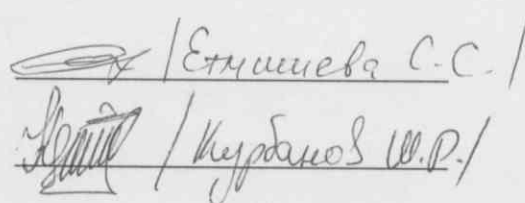 / Етмишева С.С. /
/ Курбанов Ш.Р. /